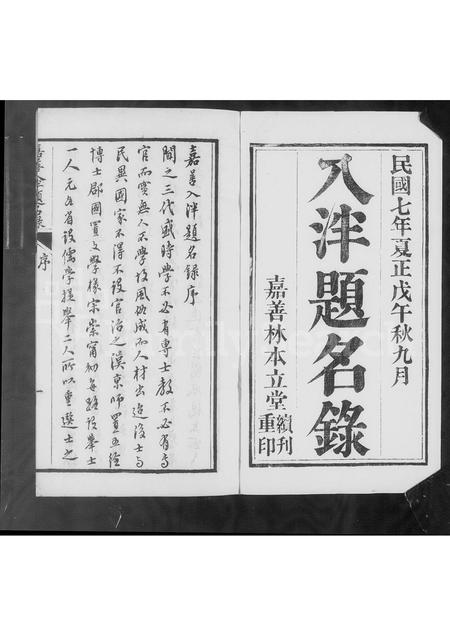 民國七年夏正戊午秋九月
入泮題名錄
嘉善林本立堂續刊
重印
嘉善入泮題名錄序
聞之三代盛時學不必有專士教不必有專
官而實無人不學故風俗成而人材出迨後士與
民異國家不得不設官治之漢京師置五經
博士郡國置文學掾宋崇甯初每路設舉士
一人元各省設儒學提舉二人所以重選士之
序
一